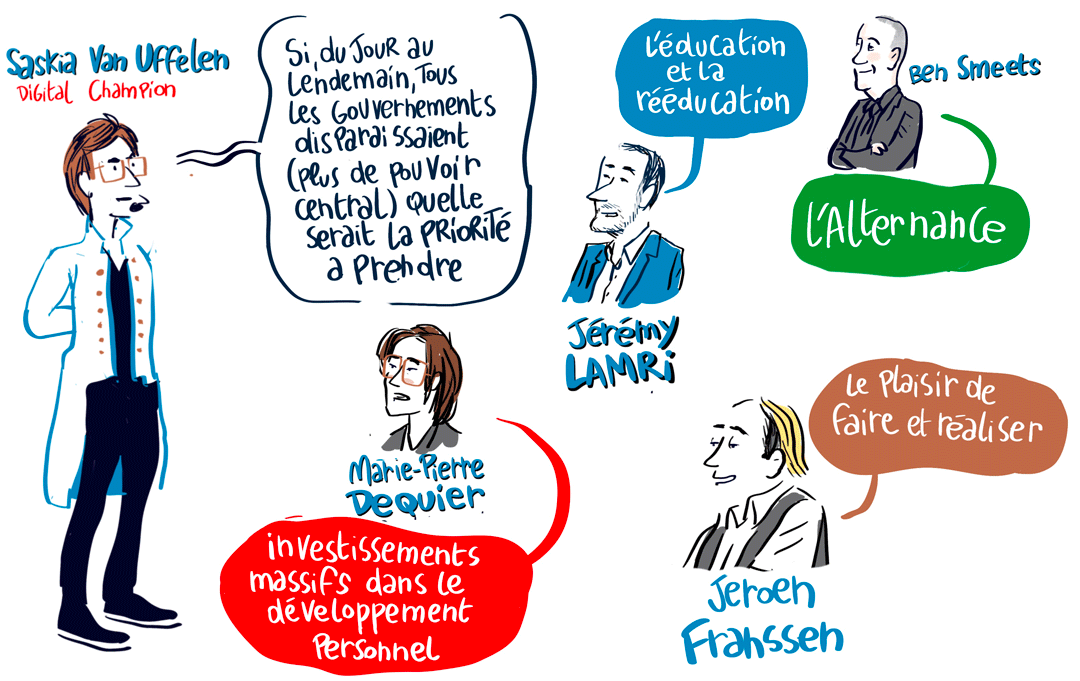 Saskia Van Uffelen
Digital Champion
Si, du jour au
lendemain, tous
les gouvernements
disparaissaient
(plus de pouvoir
central) quelle
serait la PRIORITÉ
a prendre
L'éducation
et la
rééducation
Jérémy
LAMRI
Ben Smeets
L'Alternance
Marie-Pierre
Dequier
investissements
massifs dans le
développement
Personnel
Le Plaisir de
faire et réaliser
Jeroen
Franssen